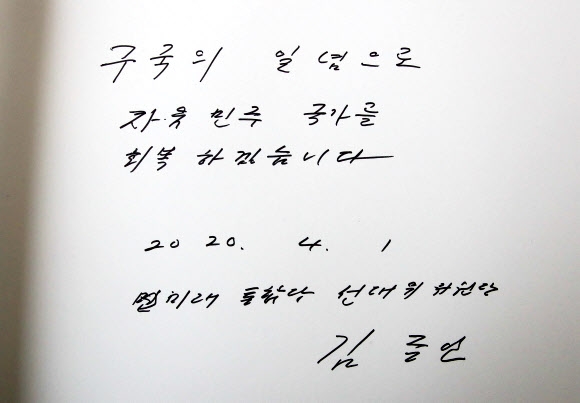 구국의 일념으로
자유 민주 국가를
회복 하겠습니다
2020. 4. 1
미래 통합당 선대위 위원장
김 종 인